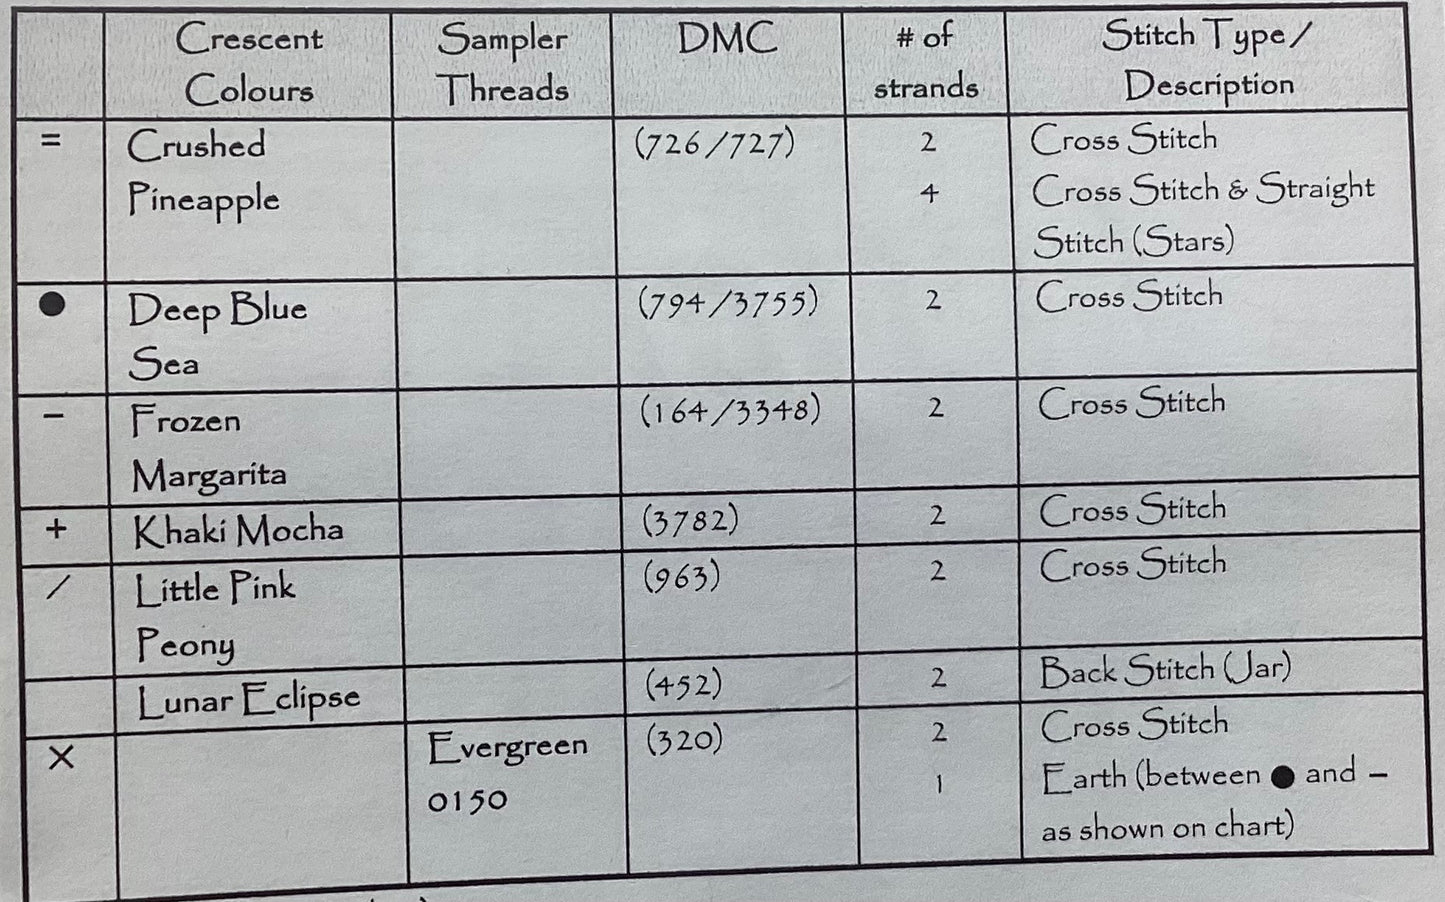 Crescent Colours | Sampler Threads | DMC | # of strands | Stitch Type / Description
= | Crushed Pineapple | | (726/727) | 2 | Cross Stitch
4 | Cross Stitch & Straight Stitch (Stars)
● | Deep Blue Sea | | (794/3755) | 2 | Cross Stitch
– | Frozen Margarita | | (164/3348) | 2 | Cross Stitch
+ | Khaki Mocha | | (3782) | 2 | Cross Stitch
/ | Little Pink Peony | | (963) | 2 | Cross Stitch
Lunar Eclipse | | (452) | 2 | Back Stitch (Jar)
X | | Evergreen 0150 | (320) | 2 | Cross Stitch
1 | Earth (between ● and – as shown on chart)